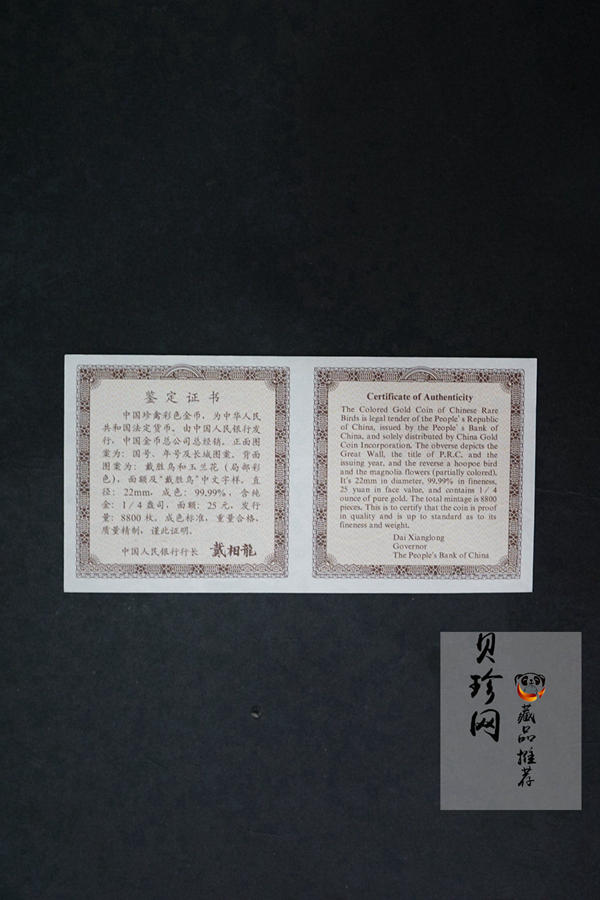 鉴定证书
中国珍禽彩色金币，为中华人民
共和国法定货币，由中国人民银行发
行，中国金币总公司总经销。正面图
案为：国号、年号及长城图案，背面
图案为：戴胜鸟和玉兰花（局部彩
色），面额及“戴胜鸟”中文字样。直
径：22mm，成色：99.99%，含纯
金：1/4盎司，面额：25元，发行
量：8800枚。成色标准，重量合格，
质量精制，谨此证明。
中国人民银行行长 戴相龍
Certificate of Authenticity
The Colored Gold Coin of Chinese Rare
Birds is legal tender of the People's Republic
of China, issued by the People's Bank of
China, and solely distributed by China Gold
Coin Incorporation. The obverse depicts the
Great Wall, the title of P.R.C. and the
issuing year, and the reverse a hoopoe bird
and the magnolia flowers (partially colored).
It's 22mm in diameter, 99.99% in fineness,
25 yuan in face value, and contains 1/4
ounce of pure gold. The total mintage is 8800
pieces. This is to certify that the coin is proof
in quality and is up to standard as to its
fineness and weight.
Dai Xianglong
Governor
The People's Bank of China
贝珍网
藏品推荐